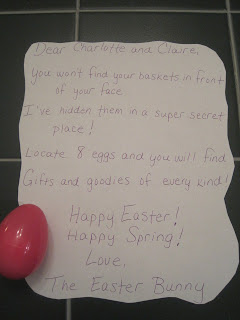 Dear Charlotte and Claire,
You won't find your baskets in front
of your face
I've hidden them in a super secret
place!
Locate 8 eggs and you will find
Gifts and goodies of every kind!
Happy Easter!
Happy Spring!
Love,
The Easter Bunny